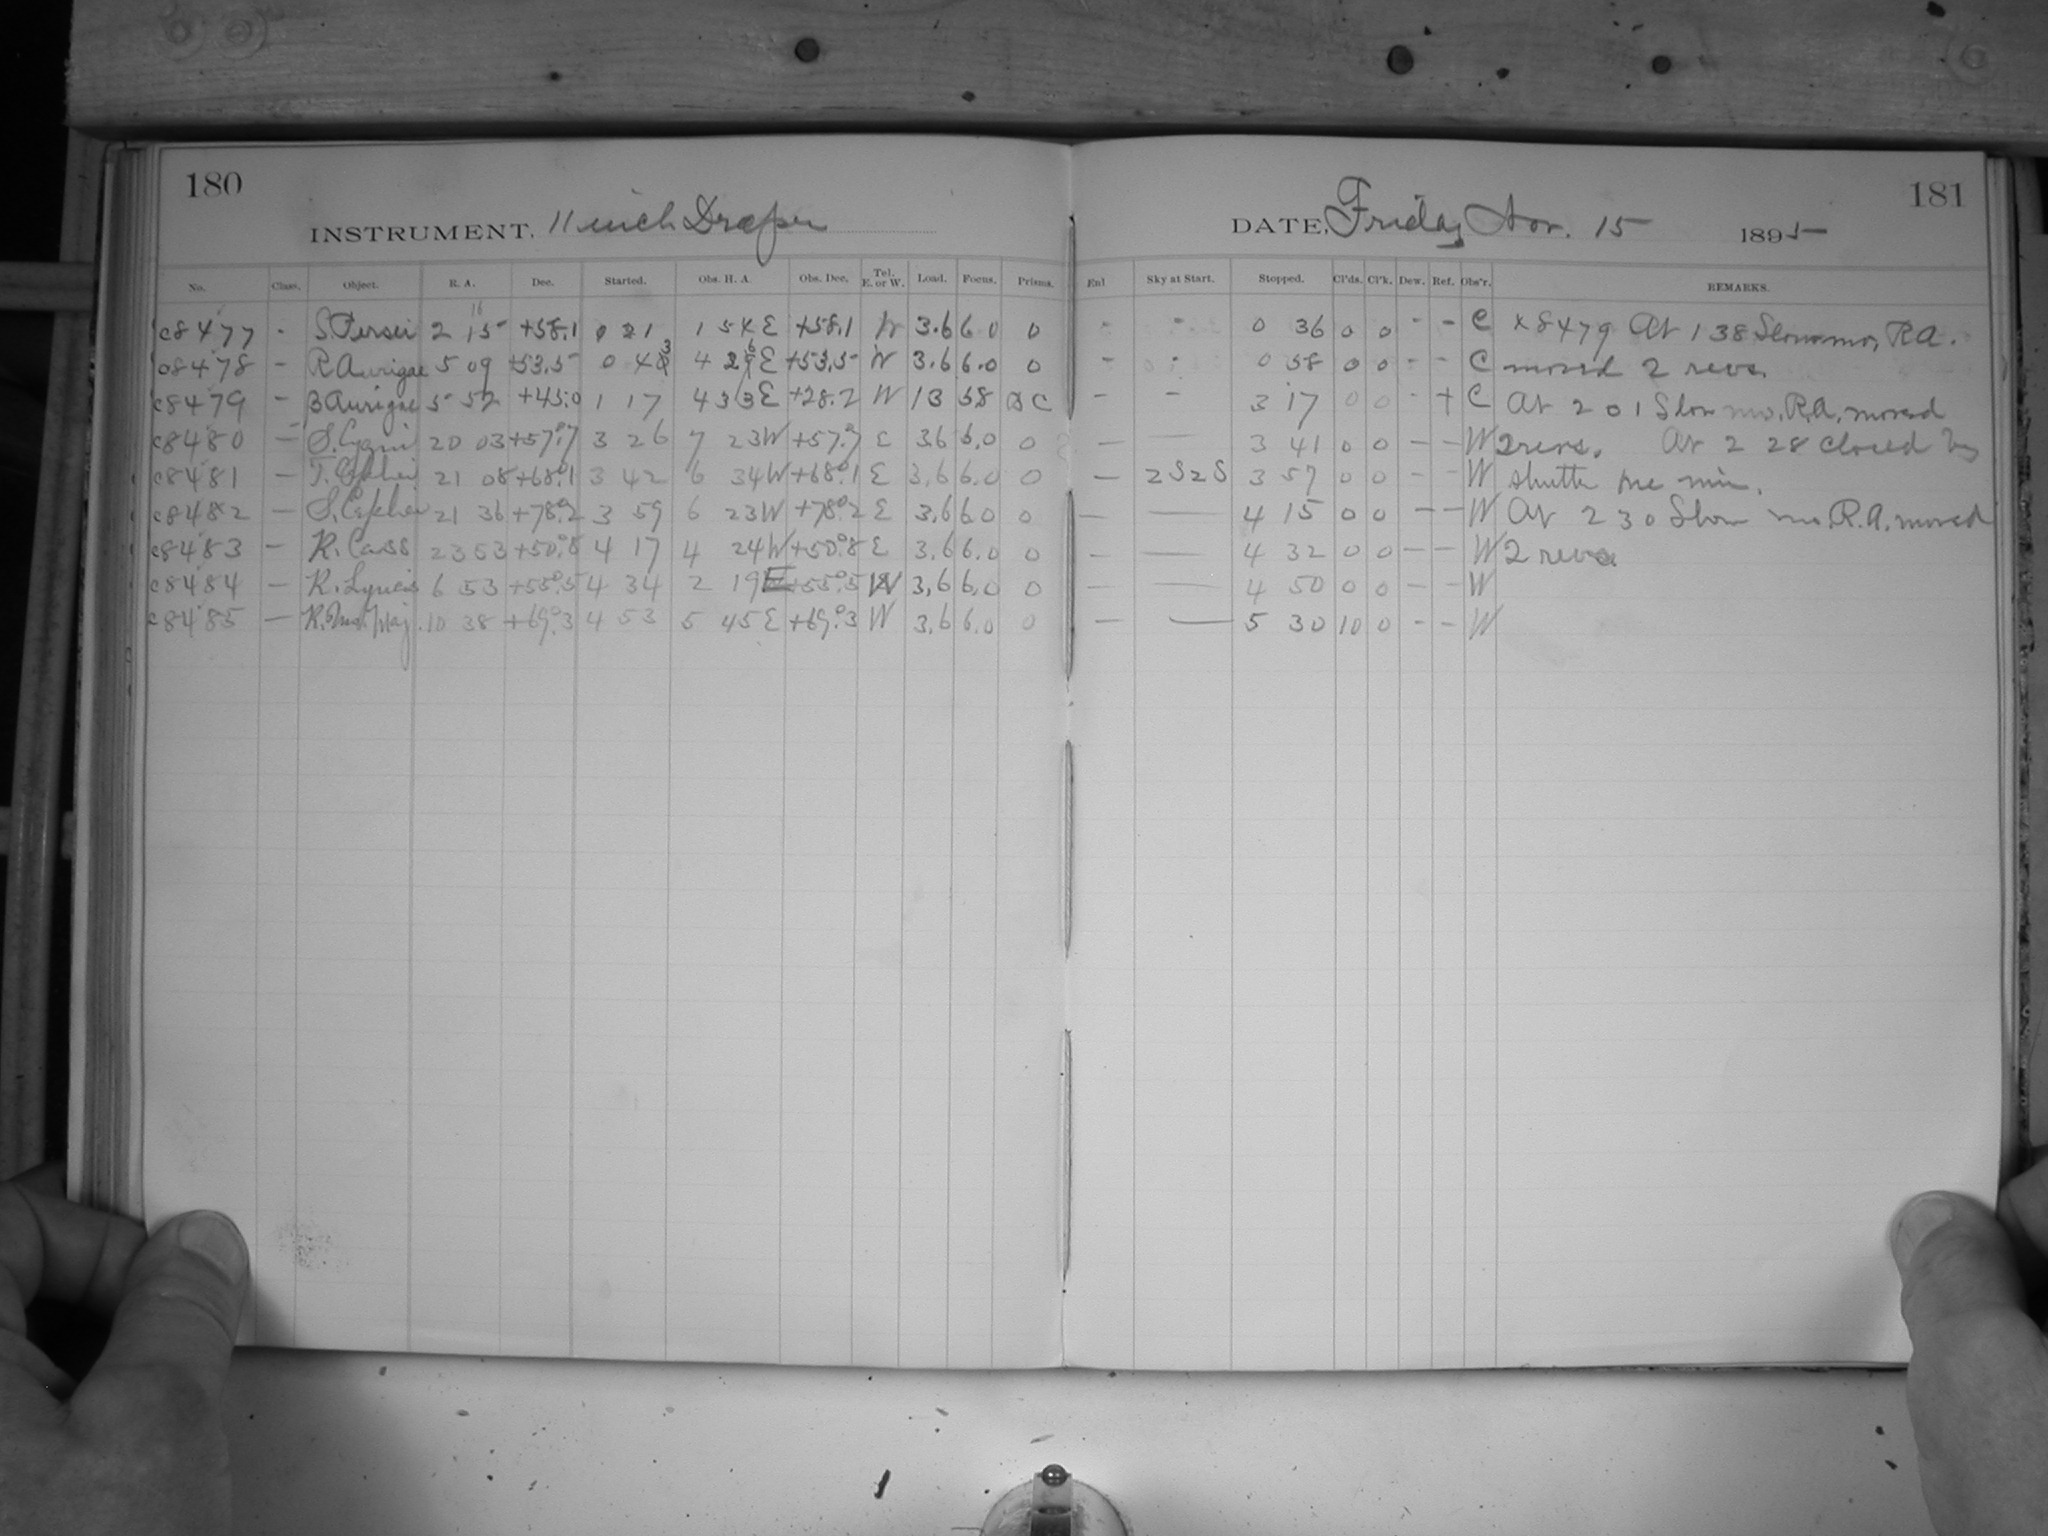 180
181
INSTRUMENT. 11 inch Draper
DATE, Friday Nov. 15 1895
No. Class. Object. R. A. Dec. Started. Obs. H. A. Obs. Dec. Tel. E. or W. Load. Focus. Prisms. Enl Sky at Start. Stopped. Cl'ds. Cl'k. Dew. Ref. Obs'r. REMARKS.
c8477 - S. Persei 2 15 +58.1 0 21 1 54 E +58.1 W 3.6 6.0 0 - - 0 36 0 0 - - C x8479 At 1 38 Slow mo, R.A.
c8478 - R Aurigae 5 09 +53.5 0 43 4 26 E +53.5 W 3.6 6.0 0 - - 0 58 0 0 - - C moved 2 revs.
c8479 - B Aurigae 5 52 +45.0 1 17 4 33 E +28.2 W 13 58 C - - 3 17 0 0 - + C At 2 01 Slow mo, R.A. moved
c8480 - S. Cygni 20 03 +57°.7 3 26 7 23 W +57°.7 E 3.6 6.0 0 - - 3 41 0 0 - - W 2 revs. At 2 28 closed by
c8481 - T. Cephei 21 08 +68°.1 3 42 6 34 W +68°.1 E 3.6 6.0 0 - 2S2S 3 57 0 0 - - W shutter one min.
c8482 - S. Cephei 21 36 +78°.2 3 59 6 23 W +78°.2 E 3.6 6.0 0 - - 4 15 0 0 - - W At 2 30 Slow mo R.A. moved
c8483 - R. Cass 23 53 +50°.8 4 17 4 24 W +50°.8 E 3.6 6.0 0 - - 4 32 0 0 - - W 2 revs.
c8484 - R. Lyncis 6 53 +55°.5 4 34 2 19 E +55°.5 W 3.6 6.0 0 - - 4 50 0 0 - - W
c8485 - R. Urs. Maj. 10 38 +69°.3 4 53 5 45 E +69°.3 W 3.6 6.0 0 - - 5 30 10 0 - - W